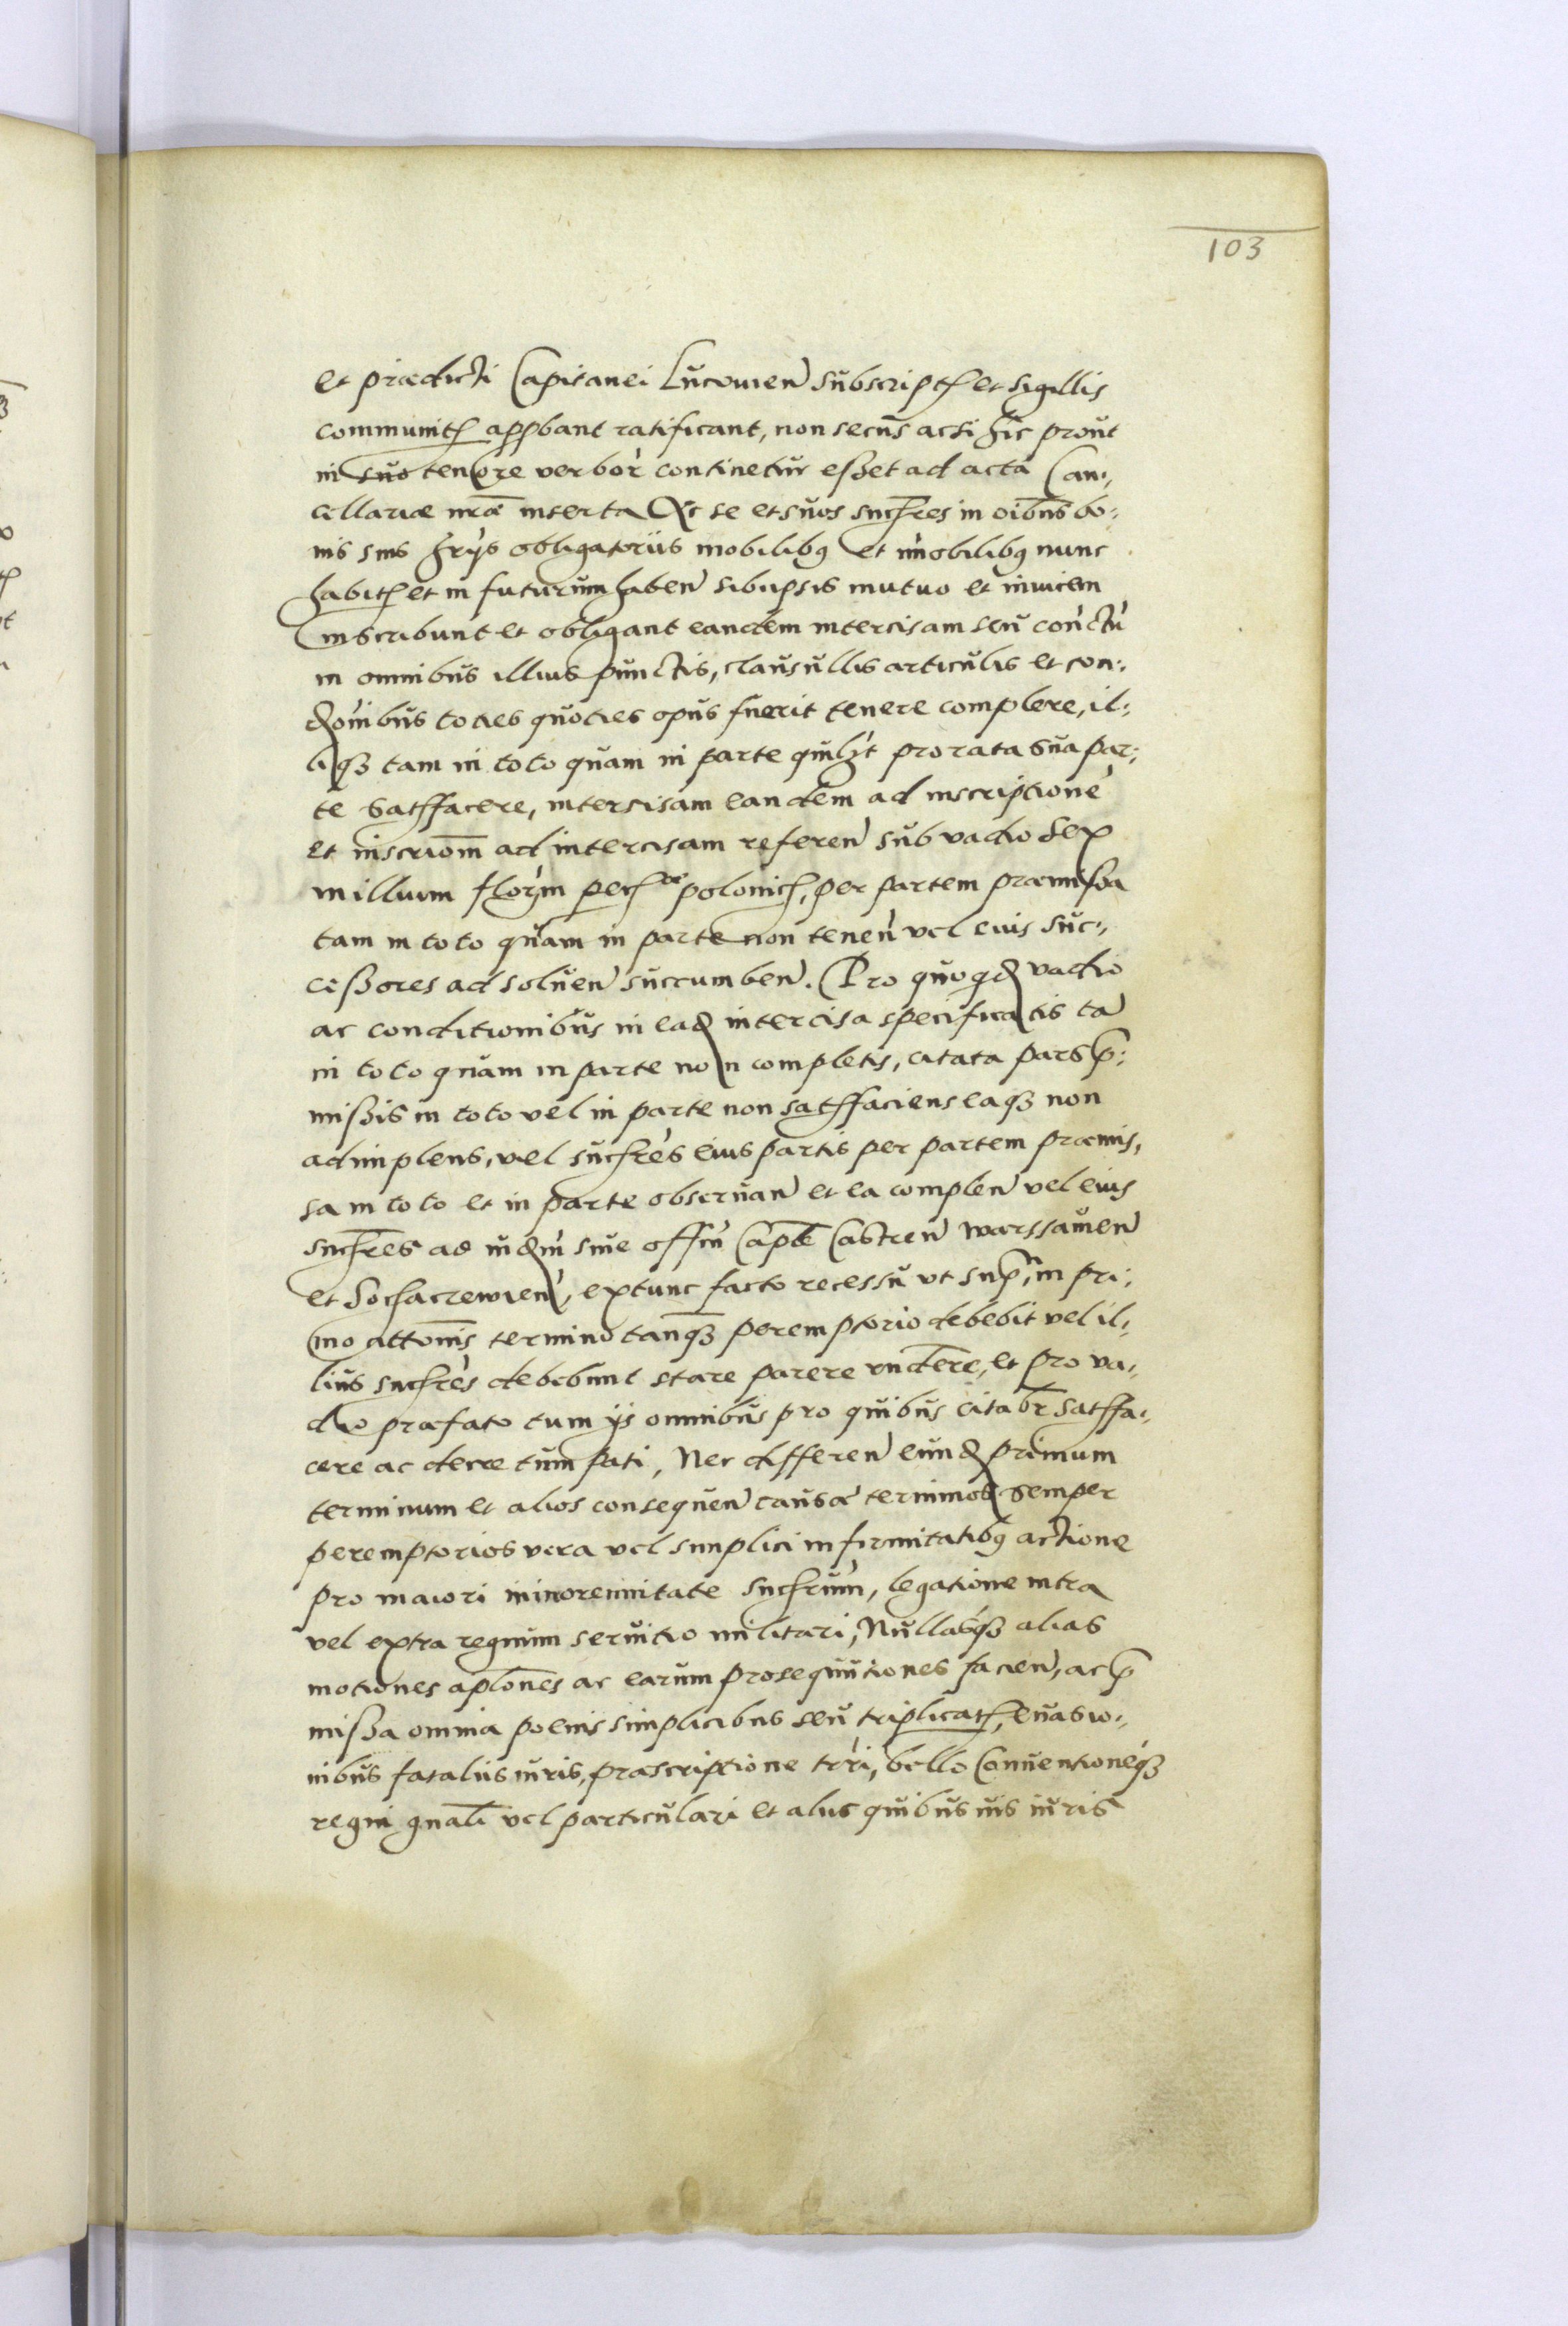 103
et prædicti Capitanei Lucouien̄ subscript͛ et sigillis
communit͛ approbant ratificant, non secus acsi hic prout
in suo tenore verbor̀ continetur esset ad acta Can„
cellariæ nr̄æ inserta Ac se et suos succr̄es in oībus bo„
nis suis hr̄ijs obligatoriis mobilibꝫ et im̄obilibꝫ nunc
habit͛ et in futurum haben̄ sibiipsis mutuo et inuicem
inscribunt et obligant eandem intercisam seu con̄ctū
in omnibus illius punctis, clausullis articulis et con„
ditōnibus toties quoties opus fuerit tenere complere, il„
liqꝫ tam in toto quam in parte quilꝫt pro rata sua par„
te satisfacere, intercisam eandem ad inscriptionē
et inscriōm̄ ad intercisam referen̄ sub vadio sex
millium flor̄ɱ pec͛æ polonic͛, per partem præmissa
tam in toto quam in parte non tenen̄ vel eius suc„
cessores ad soluen̄ succumben̄. Pro quoqd̄ vadio
ac conditionibus in ead̄ intercisa specificatis tā
in toto quam in parte non completis, citata pars p̄„
missis in toto vel in parte non satisfaciens eaqꝫ non
adimplens, vel succr̄es eius partis per partem præmis„
sa in toto et in parte obseruan̄ et ea complen̄ vel eius
succr̄es ad iudm̄ siue offm̄ Capl̄e Castren̄ Warssauien̄
et Sochaczewien̄, extunc facto recessu vt sup̄, in pri„
mo attōnis termino tanqꝫ peremptorio debebit vel il„
lius succr̄es debebunt stare parere rn̄dere, et pro va„
dio præfato tum ijs omnibus pro quibus citabr̄ satisfa„
cere ac decretum pati, Nec differen̄ eund̄ primum
terminum et alios consequen̄ causæ terminos semper
peremptorios vera vel simplici infirmitatibꝫ actione
pro maiori minorennitate succr̄um, legatione intra
vel extra regnum seruitio militari, Nullasqꝫ alias
motiones aplōnes ac earum prosequutiones facien̄, ac p̄
missa omnia poenis simplicibus seu triplicat͛, euasio„
nibus fataliis iuris, præscriptione trr̄i, bello Conuentioneqꝫ
regni gnāli vel particulari et aliis quibusuis iuris